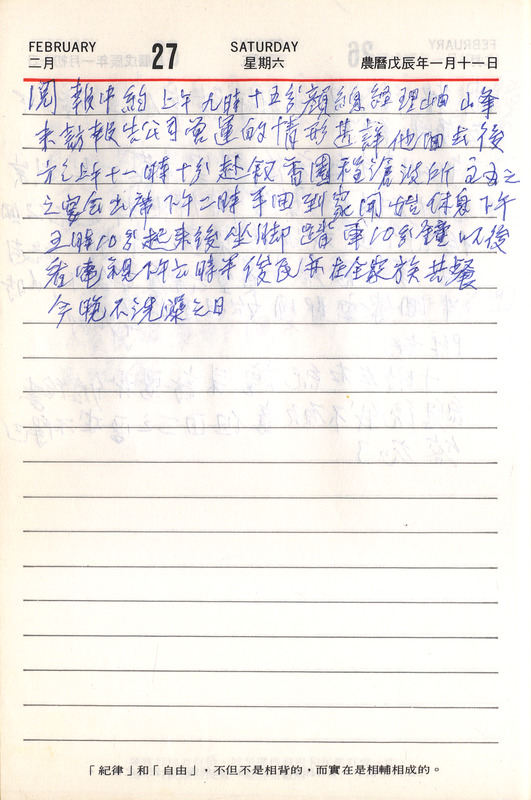 FEBRUARY 27 SATURDAY
二月 星期六 農曆戊辰年一月十一日
閱報中約上午九時十五分顏總經理岫峰
來訪報告公司營運的情形甚詳他回去後
於上午十一時十分赴敘香園程滄波所
之宴會出席下午二時半回到家開始休息下午
五時10分起來後坐腳踏車10分鐘以後
看電視下午六時半俊民亦在全家族共餐
今晚不洗澡之日
「紀律」和「自由」，不但不是相背的，而實在是相輔相成的。